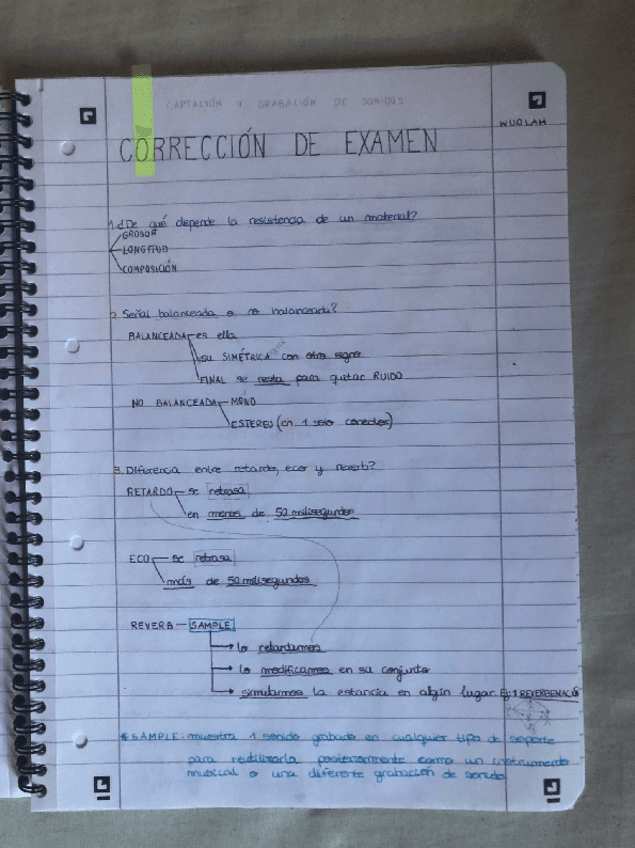 CAPTACIÓN Y GRABACIÓN DE SONIDOS
WUOLAH
CORRECCIÓN DE EXAMEN
1.¿De qué depende la resistencia de un material?
GROSOR
LONGITUD
COMPOSICIÓN
2. Señal balanceada o no balanceada?
BALANCEADA es ella
su SIMÉTRICA con otro signo
FINAL se resta para quitar RUIDO
NO BALANCEADA MONO
ESTEREO (en 1 solo conector)
3. Diferencia entre retardo, eco y reverb?
RETARDO se retrasa
en menos de 50 milisegundos
ECO se retrasa
más de 50 milisegundos
REVERB SAMPLE
lo retardamos
lo modificamos en su conjunto
simulamos la estancia en algún lugar. Ej:
* SAMPLE: muestra 1 sonido grabado en cualquier tipo de soporte
para reutilizarla posteriormente como un instrumento
musical o una diferente grabación de sonido